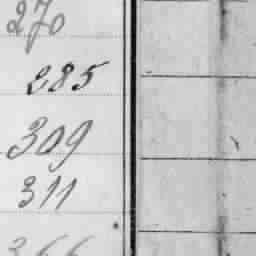 270
285
309
311
366